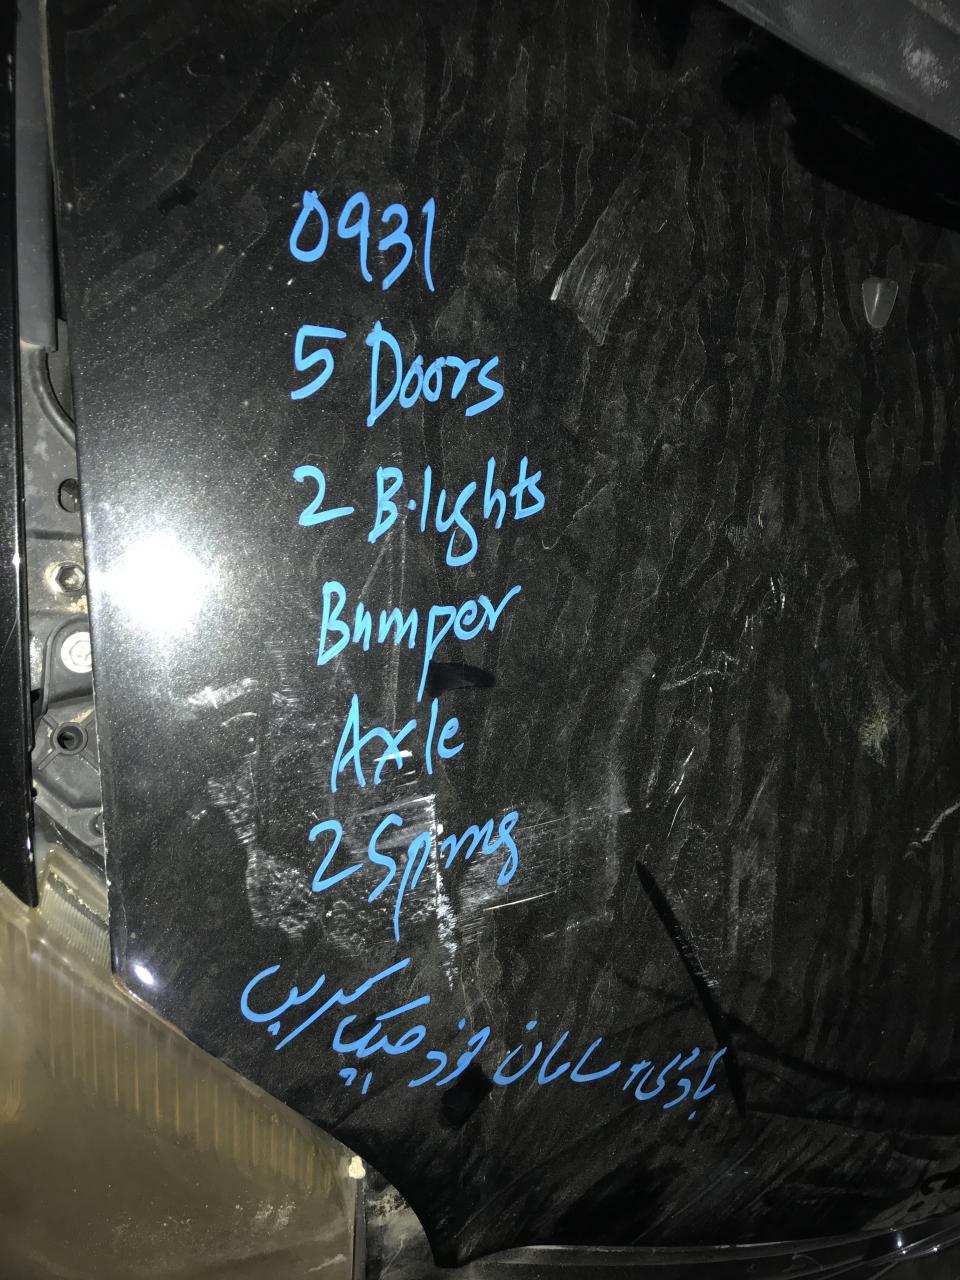 0931
5 Doors
2 B.lights
Bumper
Axle
2 Spring
باڈی + سامان خود چیک کریں